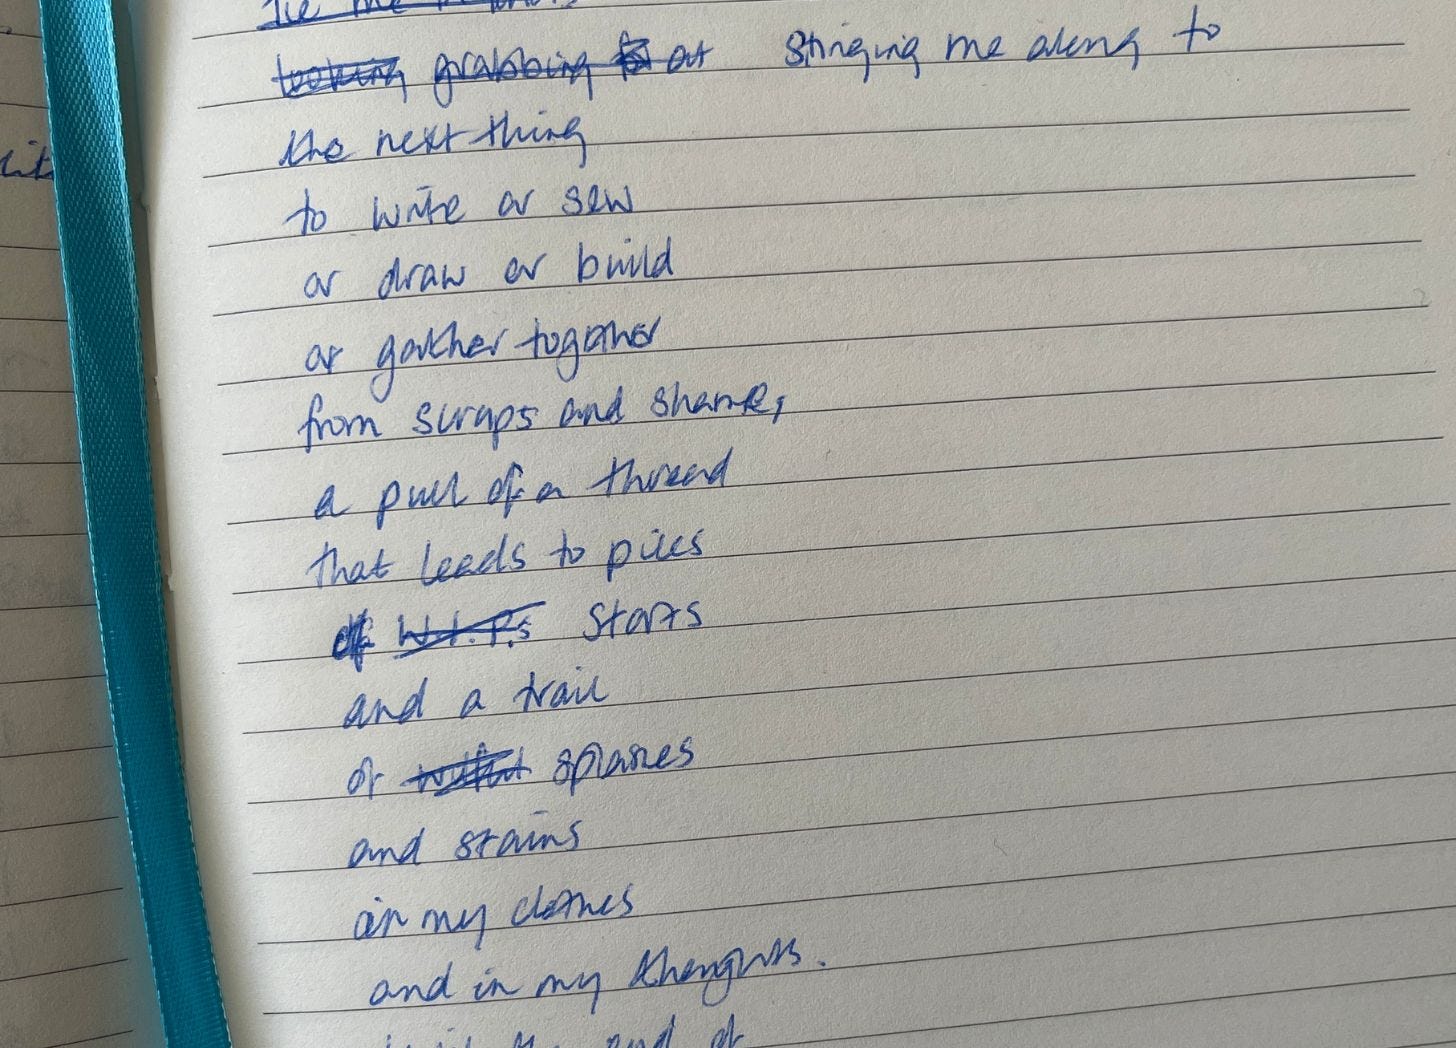 grabbing at stringing me along to
the next thing
to write or sew
or draw or build
or gather together
from scraps and shame,
a pull of a thread
that leads to piles
of W.I.P.s starts
and a trail
of splashes
and stains
in my clothes
and in my thoughts.